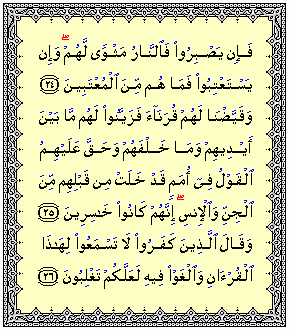 فَإِن يَصْبِرُوا۟ فَٱلنَّارُ مَثْوًى لَّهُمْ ۖ وَإِن
يَسْتَعْتِبُوا۟ فَمَا هُم مِّنَ ٱلْمُعْتَبِينَ ﴿٢٤﴾
وَقَيَّضْنَا لَهُمْ قُرَنَآءَ فَزَيَّنُوا۟ لَهُم مَّا بَيْنَ
أَيْدِيهِمْ وَمَا خَلْفَهُمْ وَحَقَّ عَلَيْهِمُ
ٱلْقَوْلُ فِىٓ أُمَمٍ قَدْ خَلَتْ مِن قَبْلِهِم مِّنَ
ٱلْجِنِّ وَٱلْإِنسِ ۖ إِنَّهُمْ كَانُوا۟ خَـٰسِرِينَ ﴿٢٥﴾
وَقَالَ ٱلَّذِينَ كَفَرُوا۟ لَا تَسْمَعُوا۟ لِهَـٰذَا
ٱلْقُرْءَانِ وَٱلْغَوْا۟ فِيهِ لَعَلَّكُمْ تَغْلِبُونَ ﴿٢٦﴾